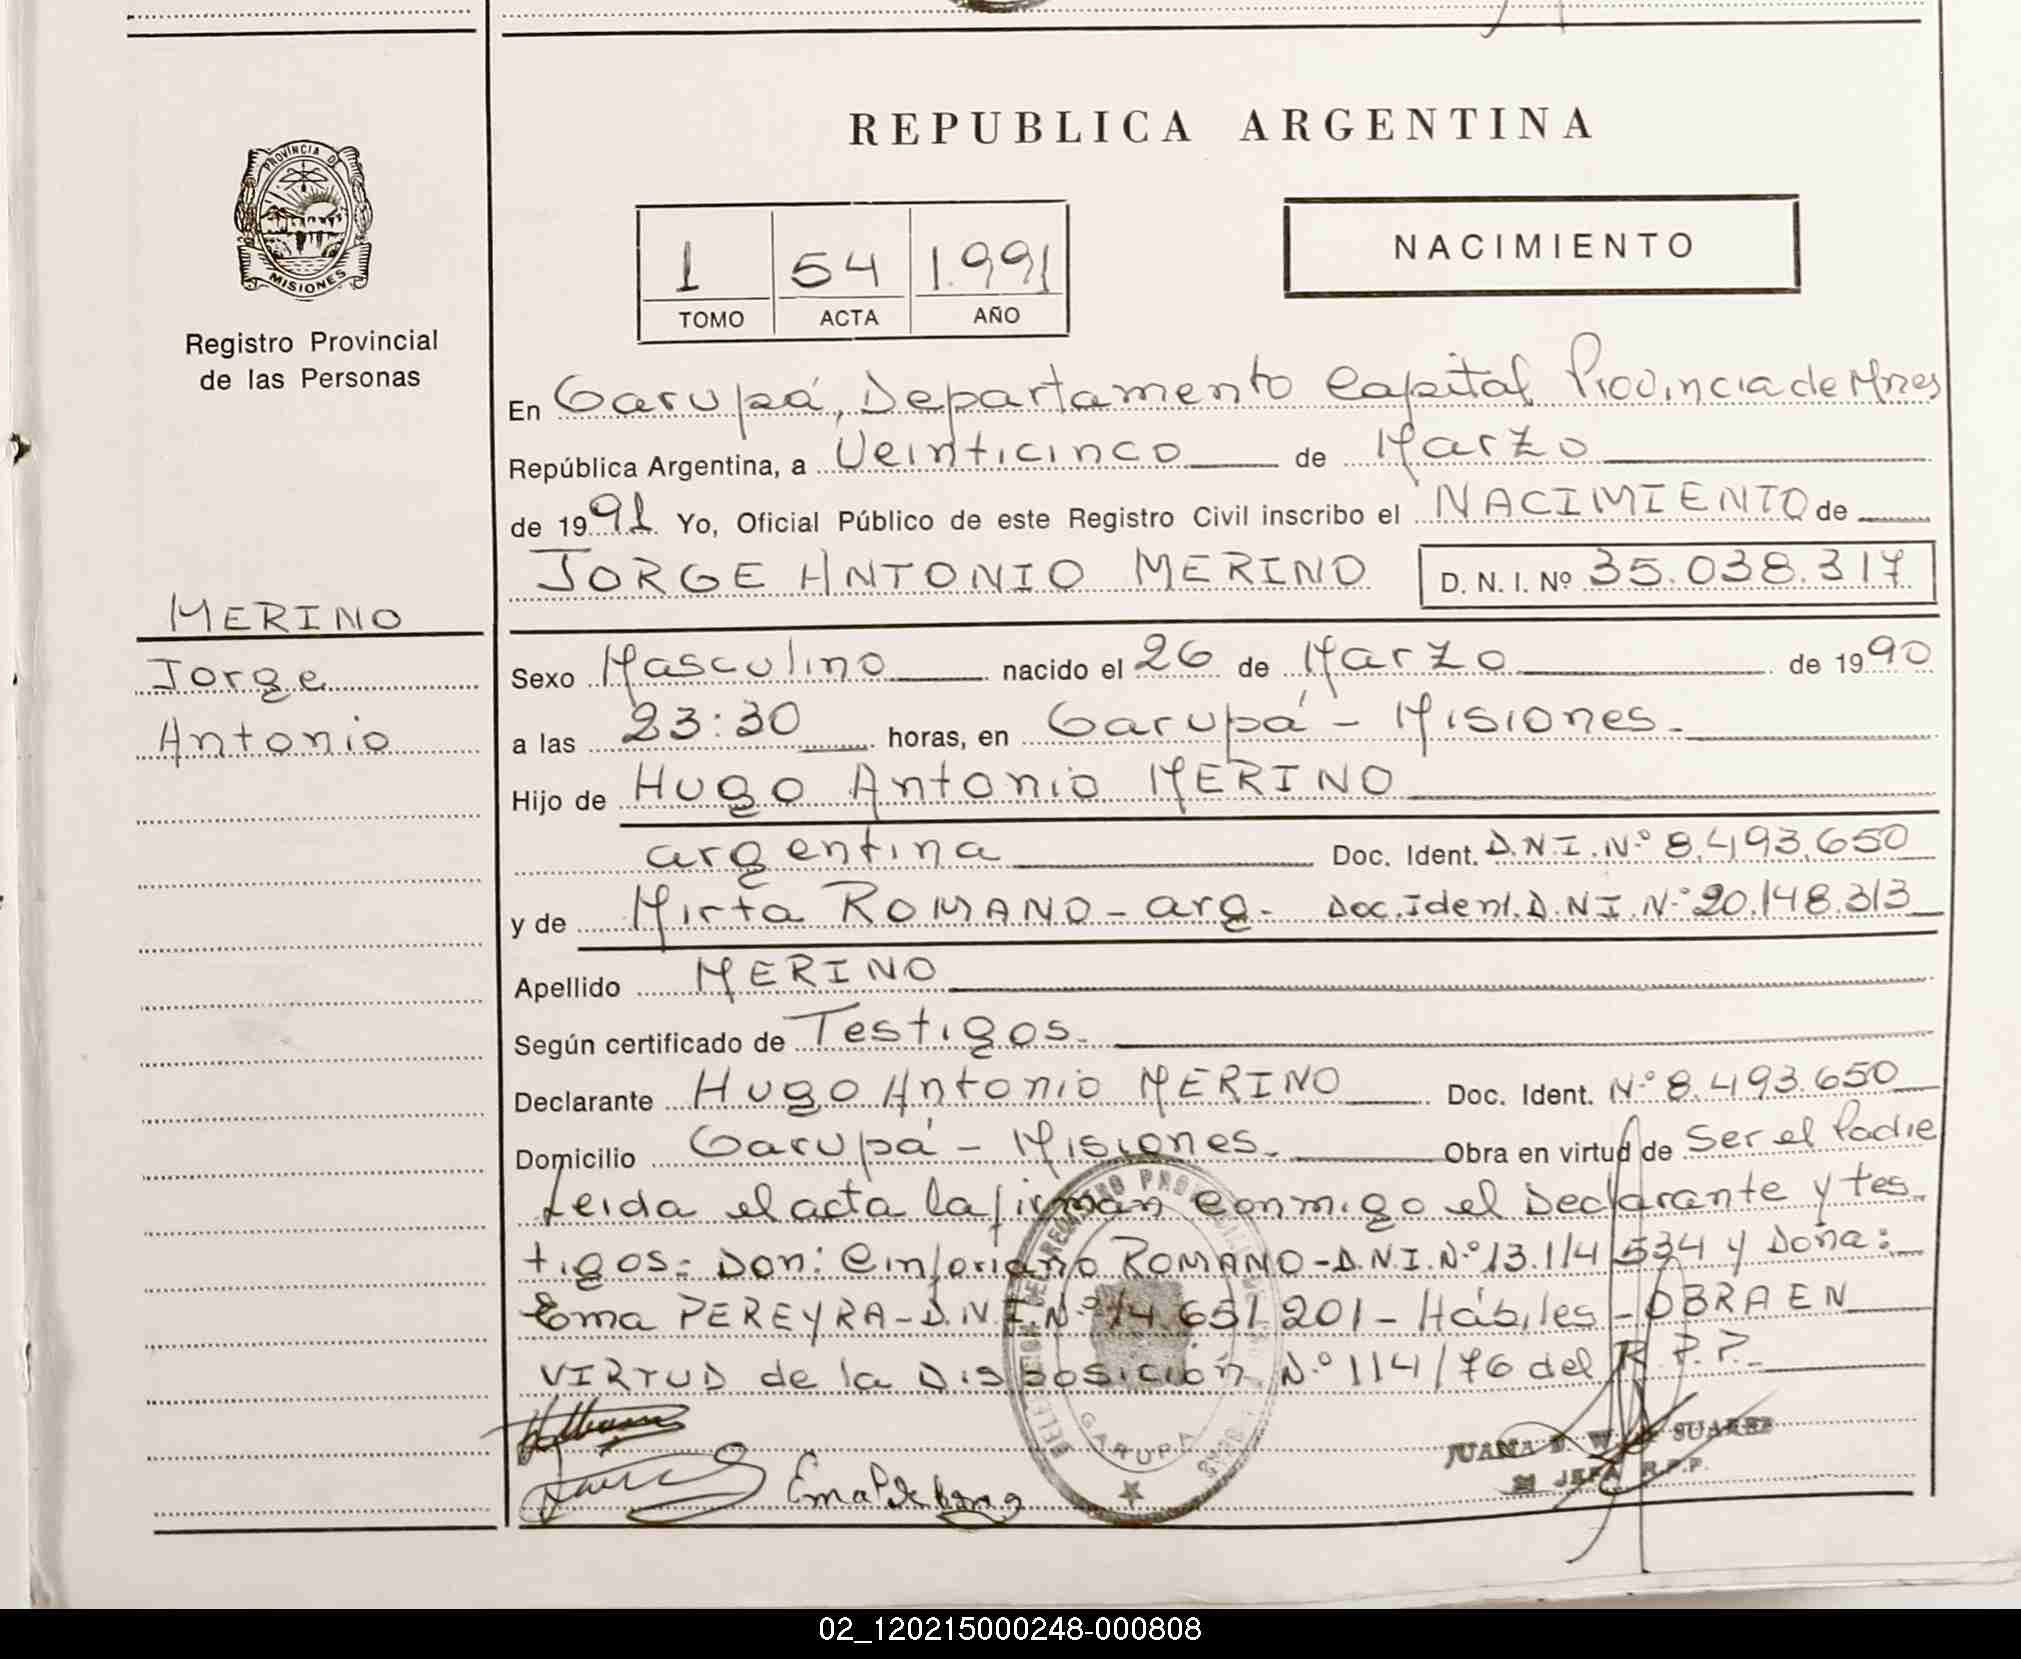 REPUBLICA ARGENTINA
PROVINCIA D
MISIONES
Registro Provincial
de las Personas
MERINO
Jorge
Antonio
NACIMIENTO
1 54 1.991
TOMO ACTA AÑO
En Garupá, Departamento Capital Provincia de Mnes
República Argentina, a Veinticinco de Marzo
de 1991 Yo, Oficial Público de este Registro Civil inscribo el NACIMIENTO de
JORGE ANTONIO MERINO D. N. I. Nº 35.038.317
Sexo Masculino nacido el 26 de Marzo de 1990
a las 23:30 horas, en Garupá - Misiones.
Hijo de Hugo Antonio MERINO
argentina Doc. Ident. D.N.I.N.º 8.493.650
y de Mirta ROMANO - arg. Doc.Ident.D.N.I.N.º 20.148.313
Apellido MERINO
Según certificado de Testigos.
Declarante Hugo Antonio MERINO Doc. Ident. N.º 8.493.650
Domicilio Garupá - Misiones. Obra en virtud de Ser el Padre
Leida el acta la firman conmigo el Declarante y tes
tigos: Don: Cinforiano ROMANO - D.N.I.N.º 13.114.534 y Doña:
Ema PEREYRA - D.N.I.N.º 14.651.201 - Hábiles - OBRA EN
VIRTUD de la Disposición N.º 114/76 del R.P.P.
GARUPA
JUANA SUAREZ
JEFA R.P.P.
02_120215000248-000808